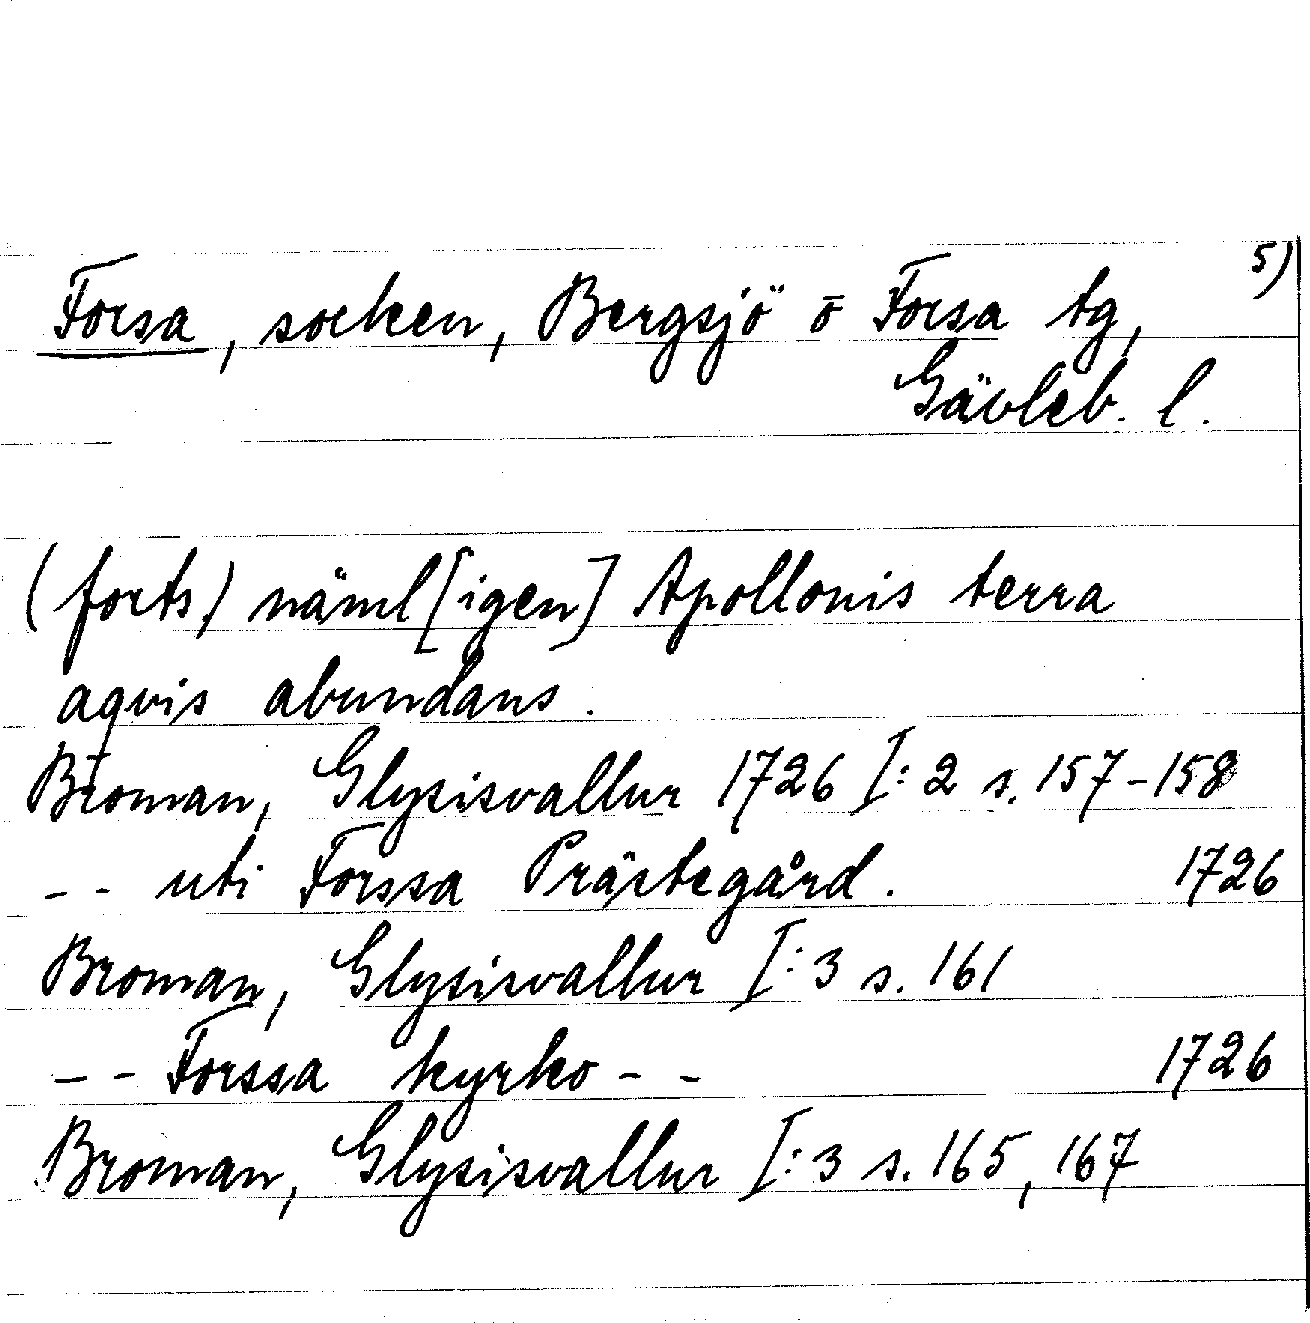 5)
Forsa, socken, Bergsjö o Forsa tg,
Gävleb. l.
(forts) näml[igen] Apollonis terra
aqvis abundans.
Broman, Glysisvallur 1726 I:2 s. 157-158
-- uti Forssa Prästegård. 1726
Broman, Glysisvallur I:3 s. 161
-- Forssa kyrko -- 1726
Broman, Glysisvallur I:3 s. 165, 167